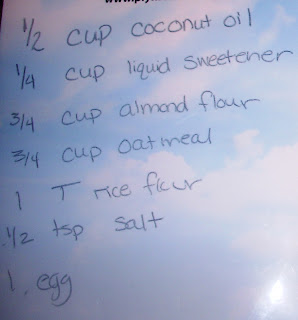 1/2 cup coconut oil
1/4 cup liquid sweetener
3/4 cup almond flour
3/4 cup oatmeal
1 T rice flour
1/2 tsp salt
1 egg